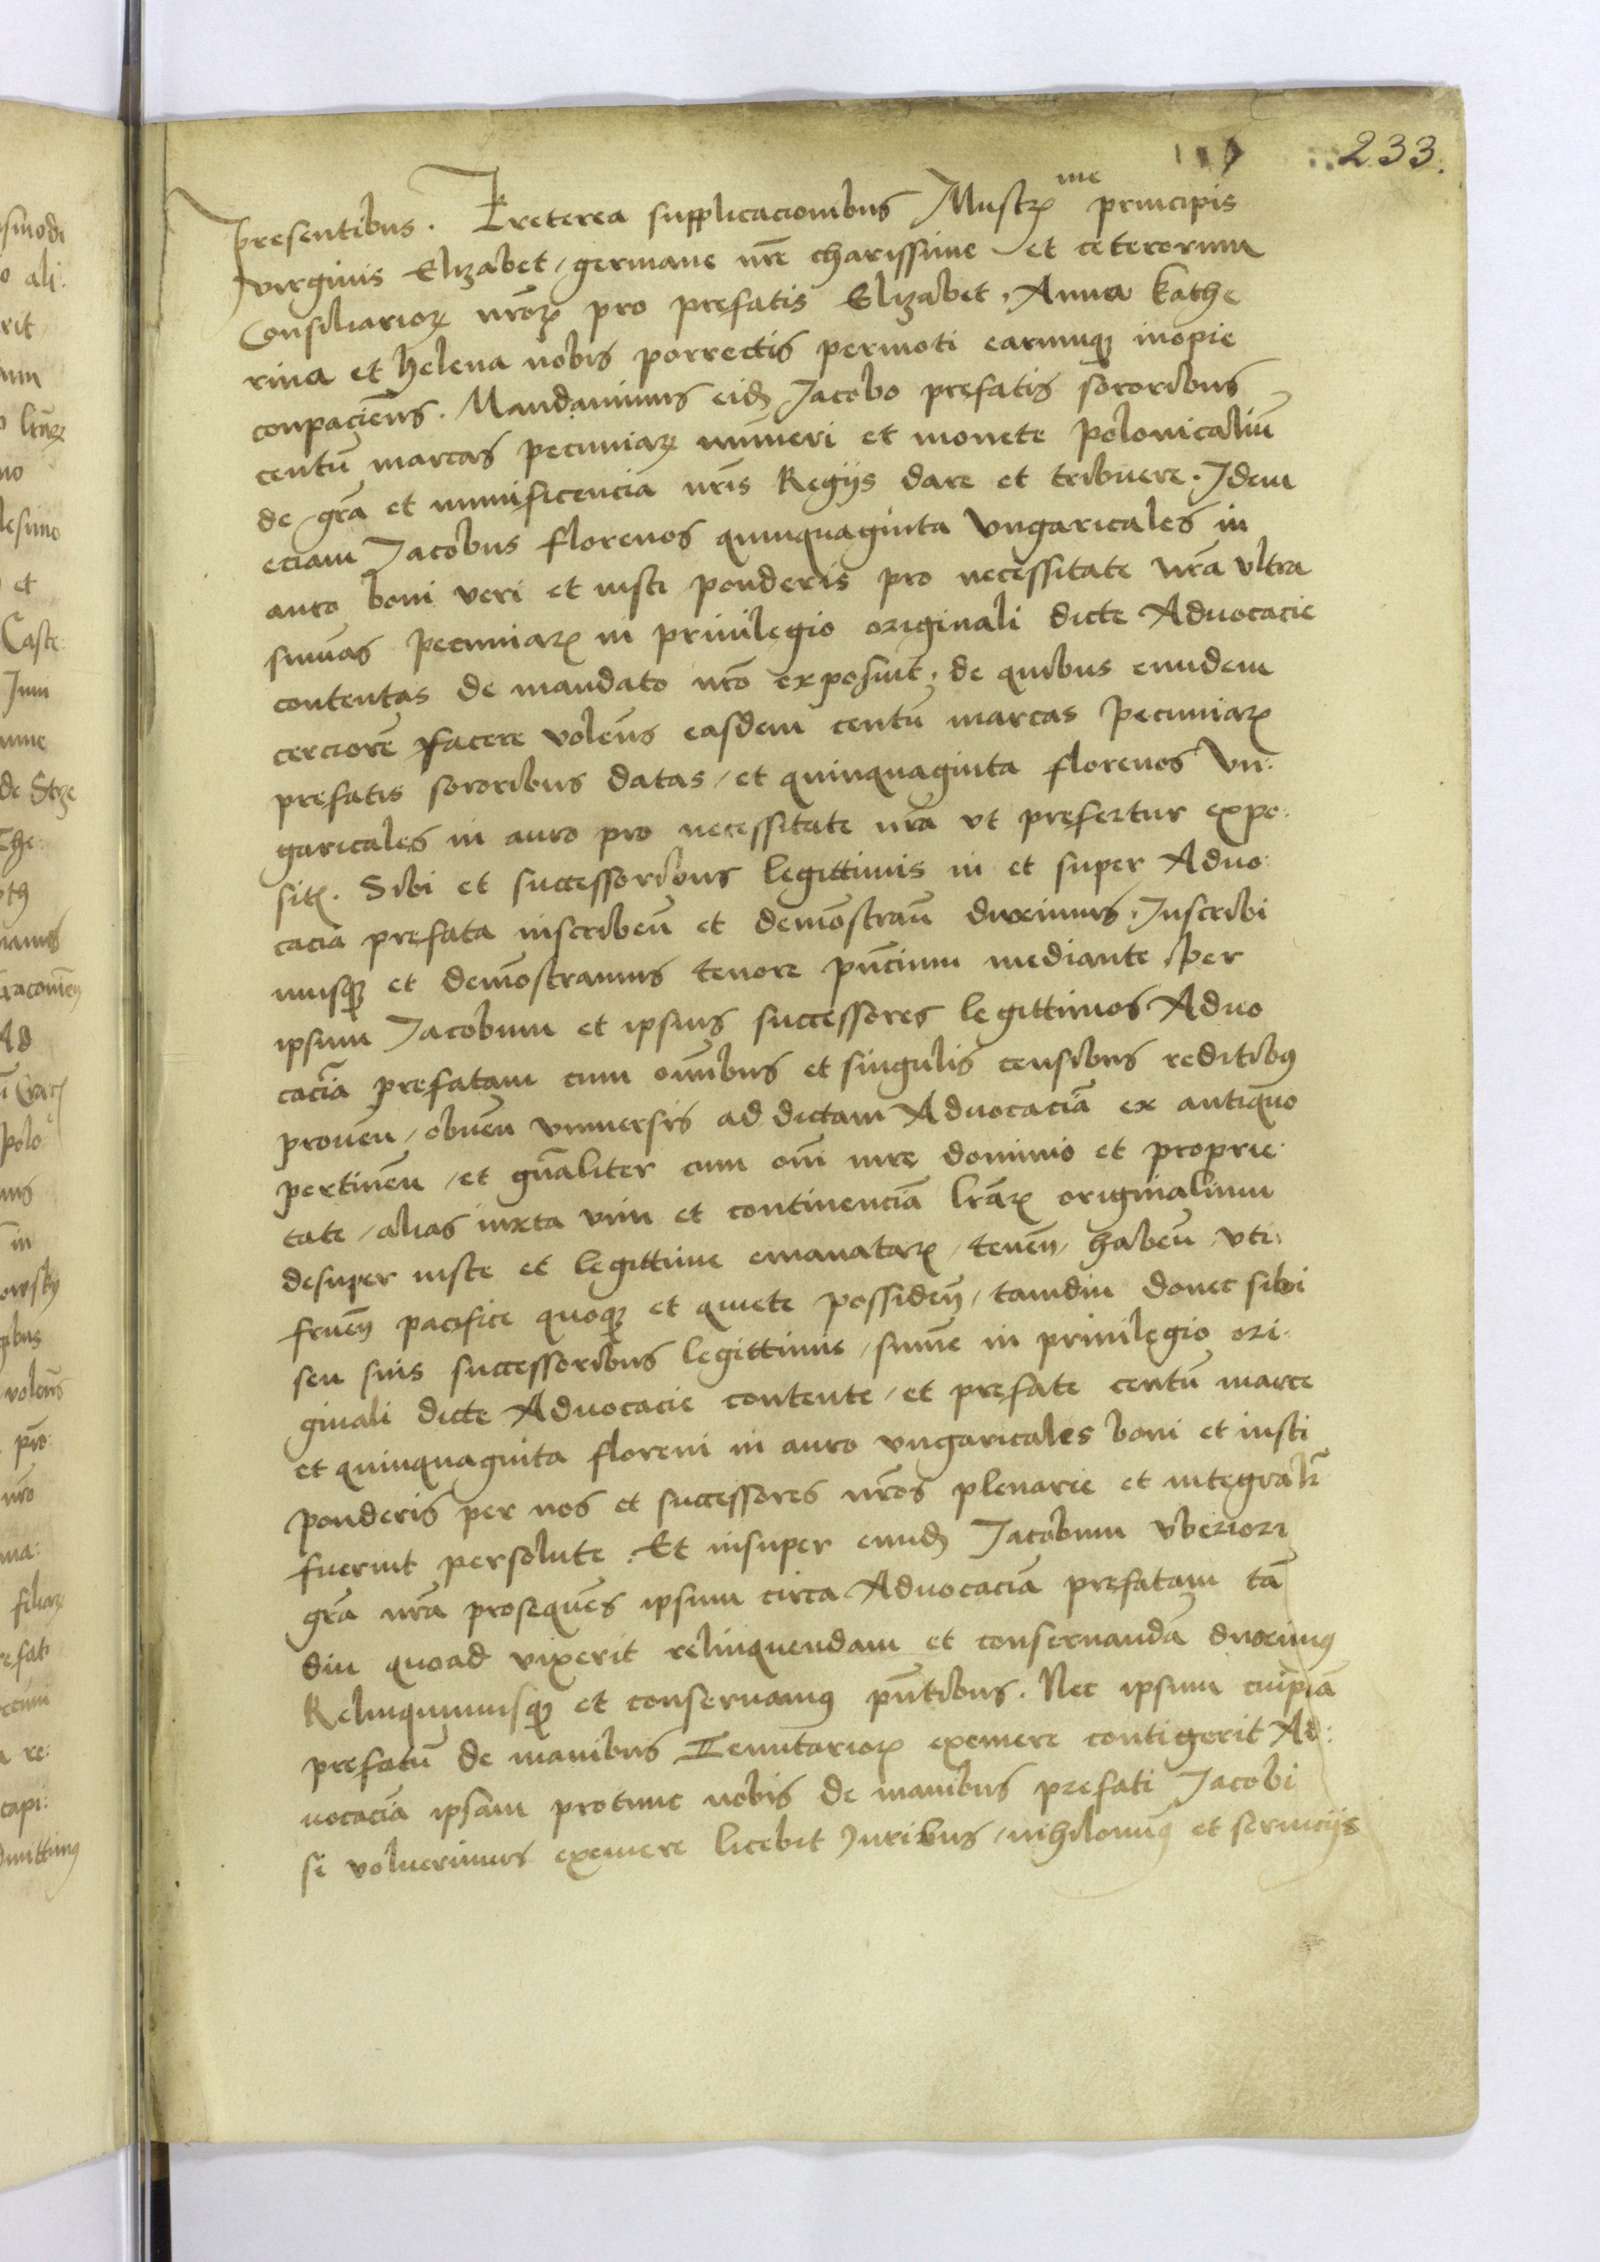 233.
presentibus. Preterea supplicacionibus Illustrꝭ me principis
virginis Elizabet / germane nr̃e charissime et ceterorum
Consiliarioꝝ nr̃oꝝ pro prefatis Elizabet, Anna Kathe
rina et Helena nobis porrectis permoti earumqꝫ inopie
conpaciẽns. Mandauimus eidẽ Jacobo prefatis sororibus
centũ marcas pecuniaꝝ numeri et monete polonicaliũ
de gr̃a et munificencia nr̃is Regijs dare et tribuere. Idem
eciam Jacobus florenos quinquaginta vngaricales in
auro boni veri et iusti ponderis pro necessitate nr̃a vltra
sum̃as pecuniaꝝ in priuilegio originali dicte Aduocacie
contentas de mandato nr̃o exposuit, de quibus eundem
cerciorẽ facere volẽns easdem centũ marcas pecuniaꝝ
prefatis sororibus datas / et quinquaginta florenos vn:
garicales in auro pro necessitate nr̃a vt prefertur expo:
sitꝭ. Sibi et successoribus legittimis in et super Aduo:
cacia prefata inscribeñ et demõstrañ duximus, Inscribi
musqꝫ et demõstramus tenore pñcium mediante per
ipsum Jacobum et ipsius successores legittimos Aduo
caciã prefatam cum om̃ibus et singulis censibus reditibꝰ
proueñ / obueñ vniuersis ad dictam Aduocaciã ex antiquo
pertineñ / et gñaliter cum om̃i iure dominio et proprie:
tate / alias iuxta vim et continenciã lr̃aꝝ originalium
desuper iuste et legittime emanataꝝ / teneñ / habeñ vti:
frueñ pacifice quoqꝫ et quiete possideñ / tamdiu donec sibi
seu suis successoribus legittimis / sum̃e in priuilegio ori:
ginali dicte Aduocacie contente / et prefate centũ marce
et quinquaginta floreni in auro vngaricales boni et iusti
ponderis per nos et successores nr̃os plenarie et integralr̃
fuerint persolute. Et insuper eundẽ Jacobum vberiori
gr̃a nr̃a prosequẽns ipsum circa Aduocaciã prefatam tã
diu quoad vixerit relinquendam et conseruandã duximꝰ
Relinquimusqꝫ et conseruamꝰ pñtibus. Nec ipsum cuipiã
prefatũ de manibus Tenutarioꝝ exemere contigerit Ad:
uocaciã ipsam protunc nobis de manibus prefati Jacobi
si voluerimus exemere licebit Juribus / nihilominꝰ et seruicijs